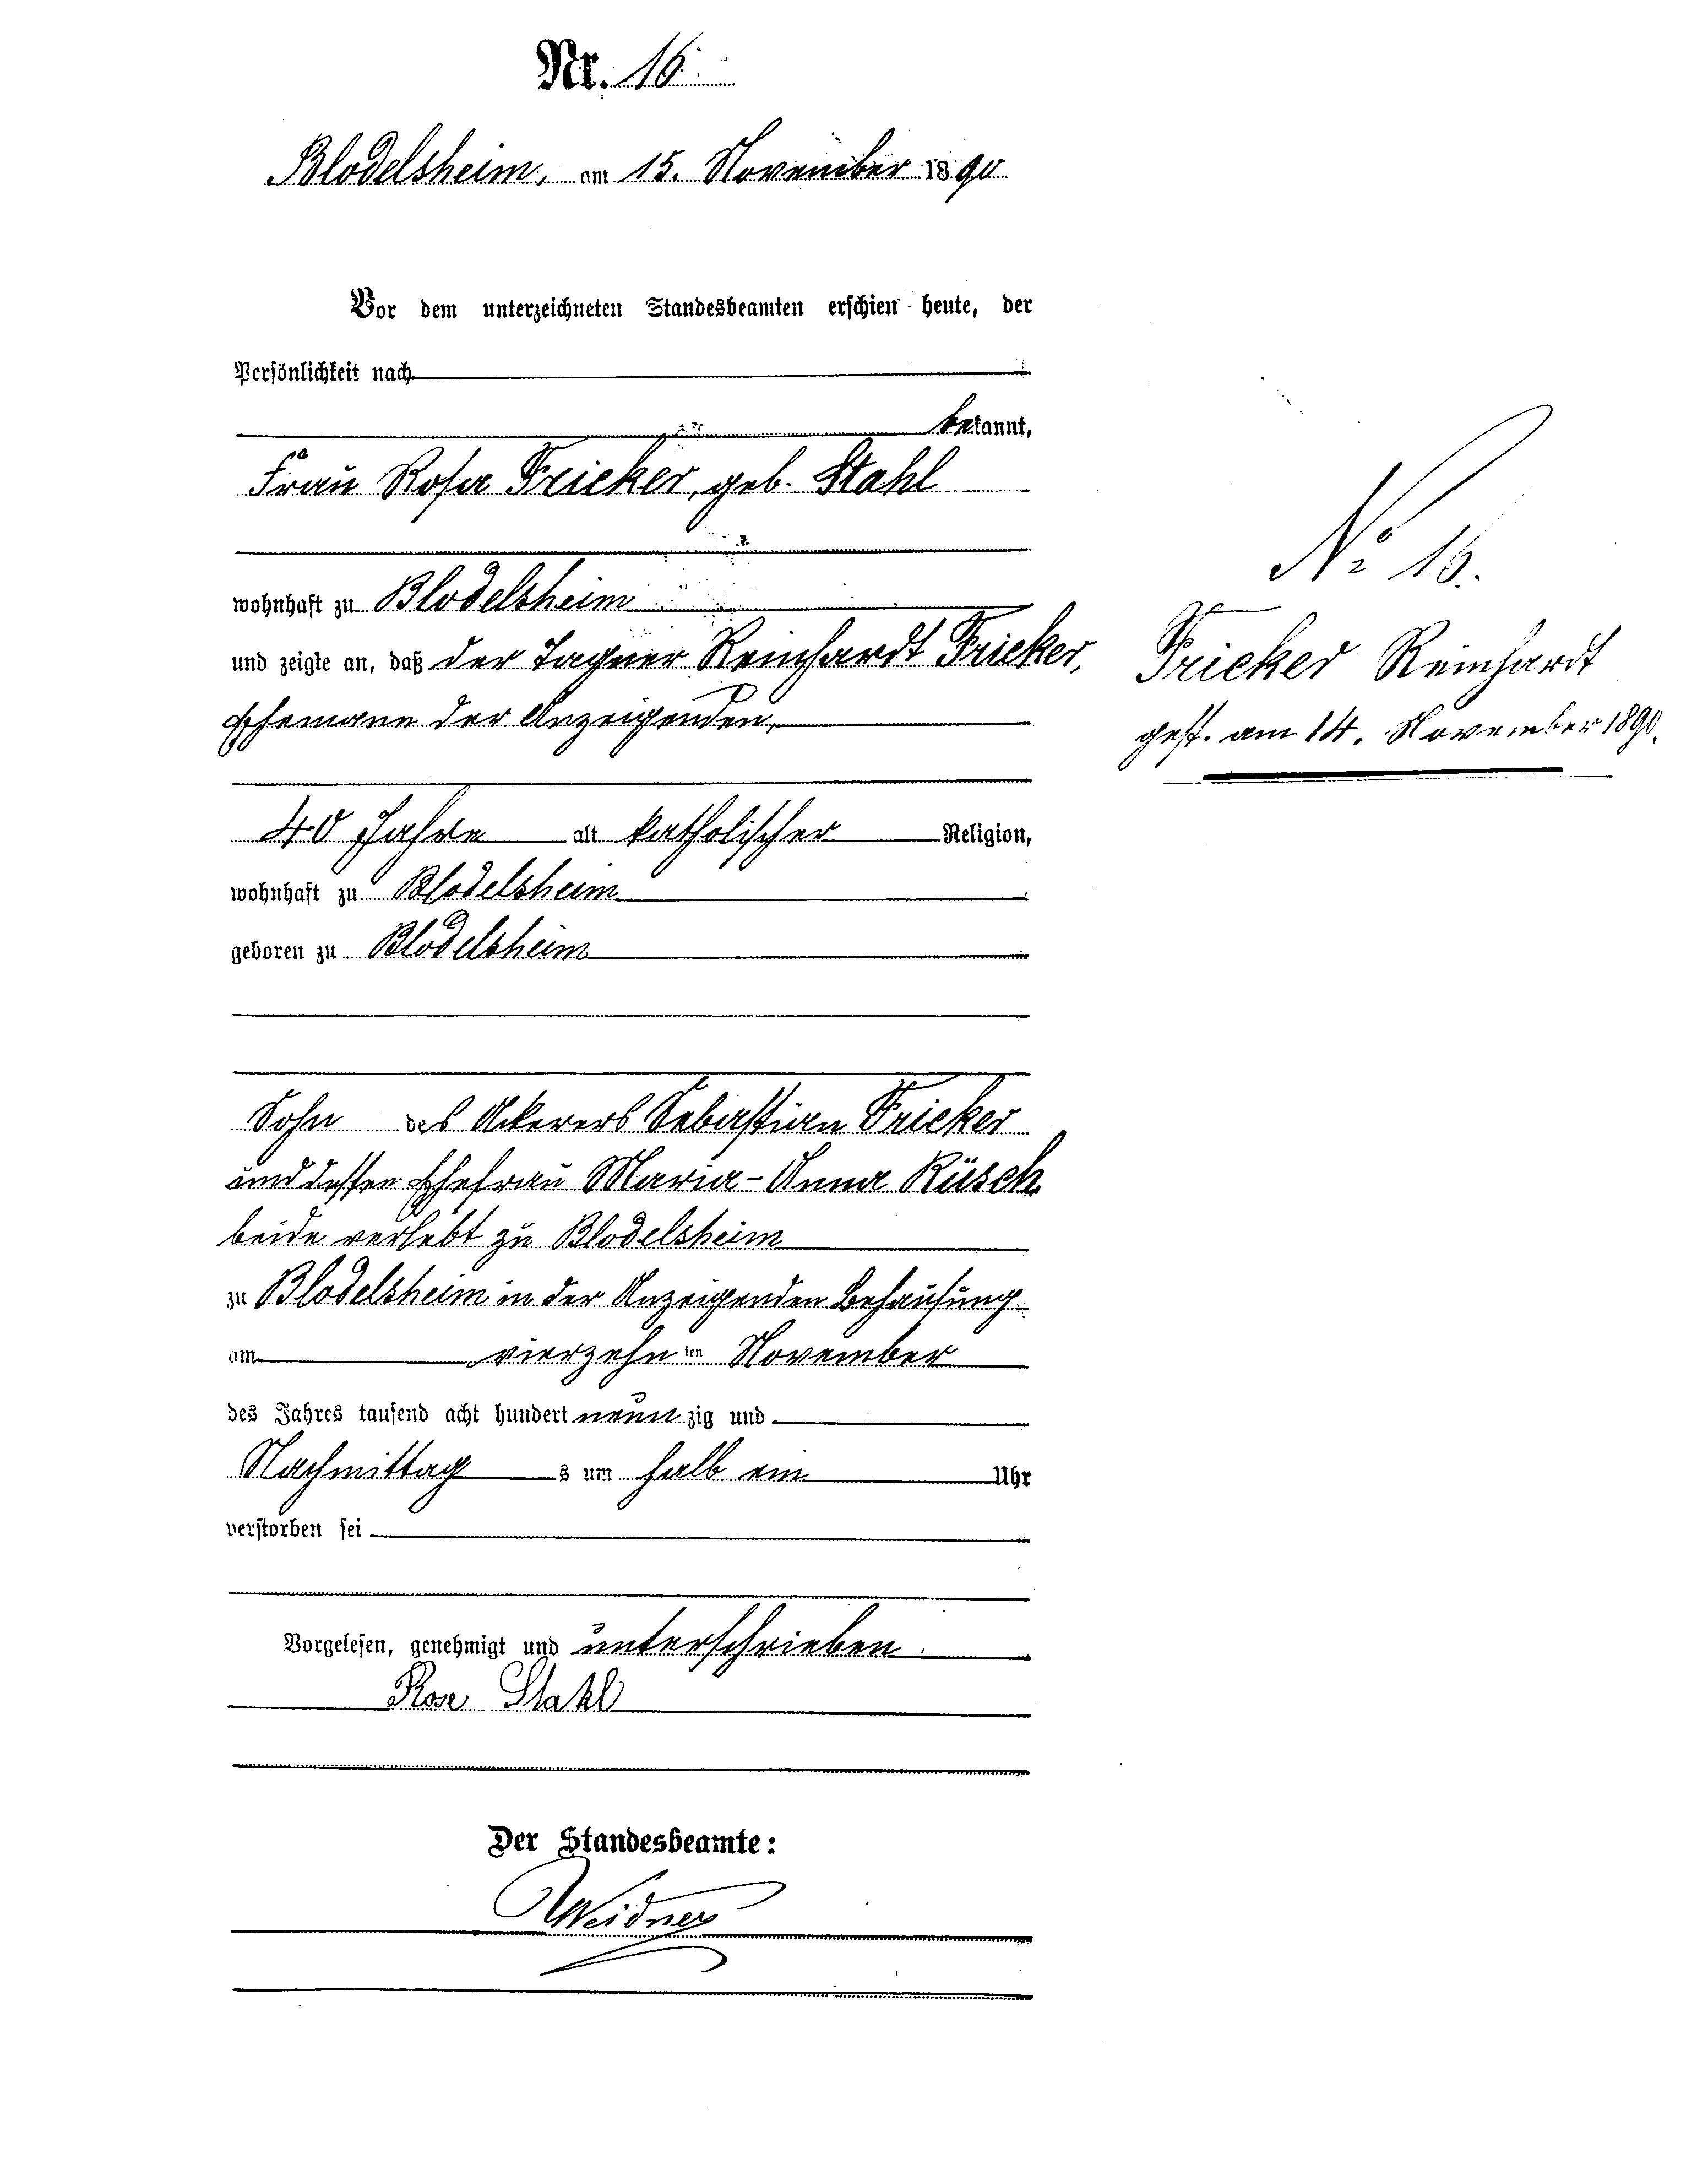 Nr. 16
Blodelsheim, am 15. November 1890
Vor dem unterzeichneten Standesbeamten erschien heute, der
Persönlichkeit nach
bekannt,
Frau Rosa Fricker, geb. Stahl
wohnhaft zu Blodelsheim
und zeigte an, daß der Tagner Reinhardt Fricker,
Ehemann der Anzeigenden,
40 Jahre alt katholischer Religion,
wohnhaft zu Blodelsheim
geboren zu Blodelsheim
Sohn des Ackerers Sebastian Fricker
und dessen Ehefrau Maria-Anna Rüsch
beide verlebt zu Blodelsheim
zu Blodelsheim in der Anzeigenden Behausung
am vierzehnten November
des Jahres tausend acht hundert neunzig und
Nachmittags um halb ein Uhr
verstorben sei
Vorgelesen, genehmigt und unterschrieben.
Rose Stahl
Der Standesbeamte:
Weidner
No 16.
Fricker Reinhardt
gest. am 14. November 1890.